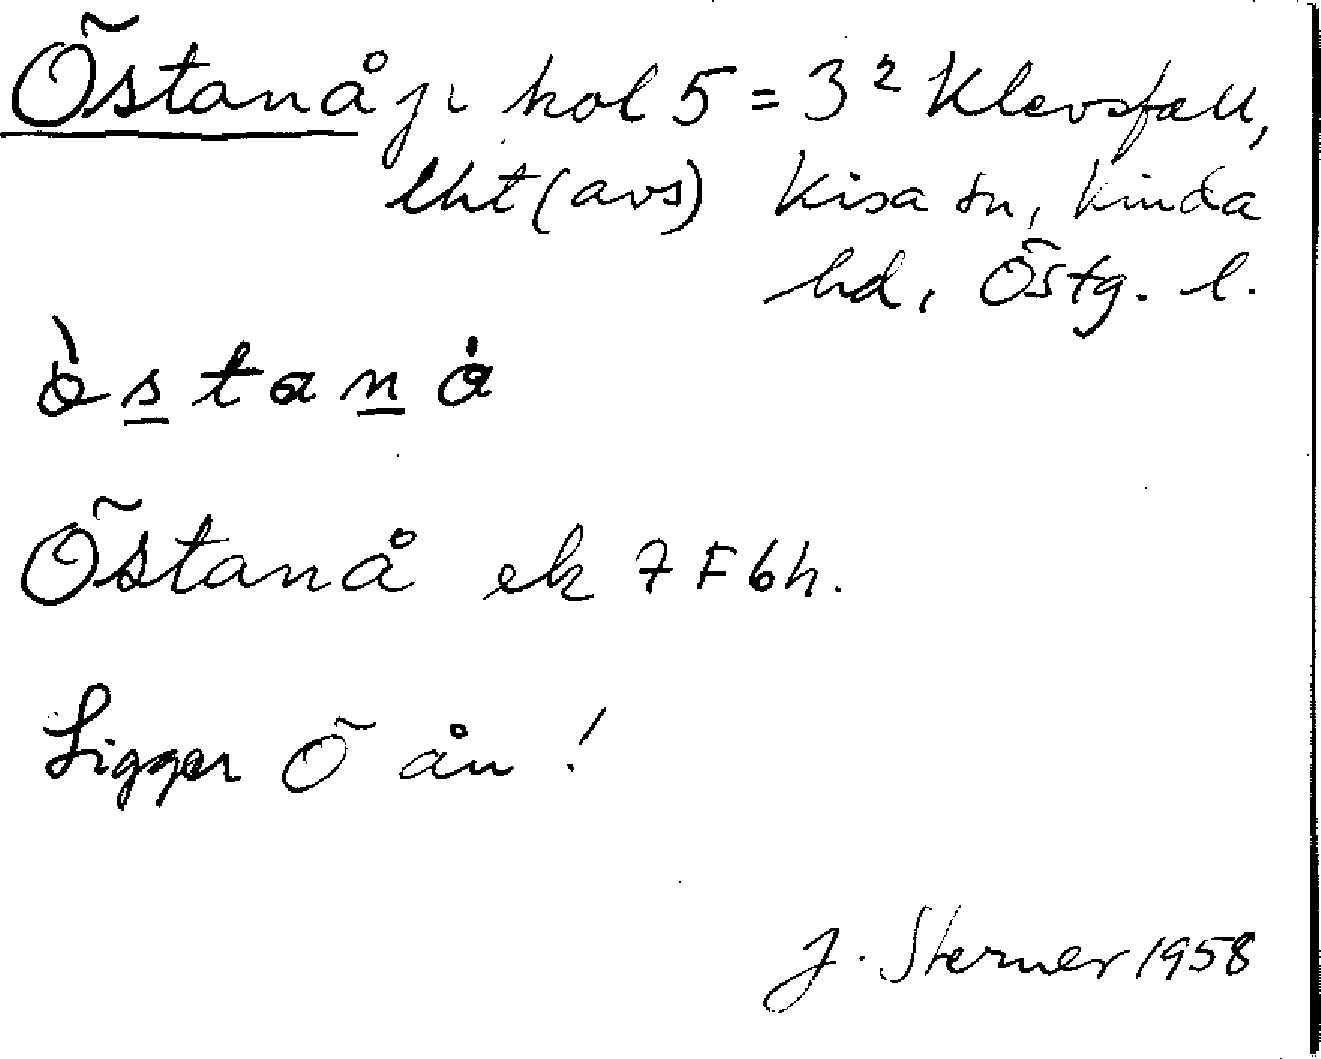 Östanå på kol 5 = 3² Klevsfall,
lht (avs) Kisa sn, Kinda
hd, Östg. l.
ò s t a n å
Östanå ek 7 F 6h.
Ligger Ö ån!
J. Sterner 1958